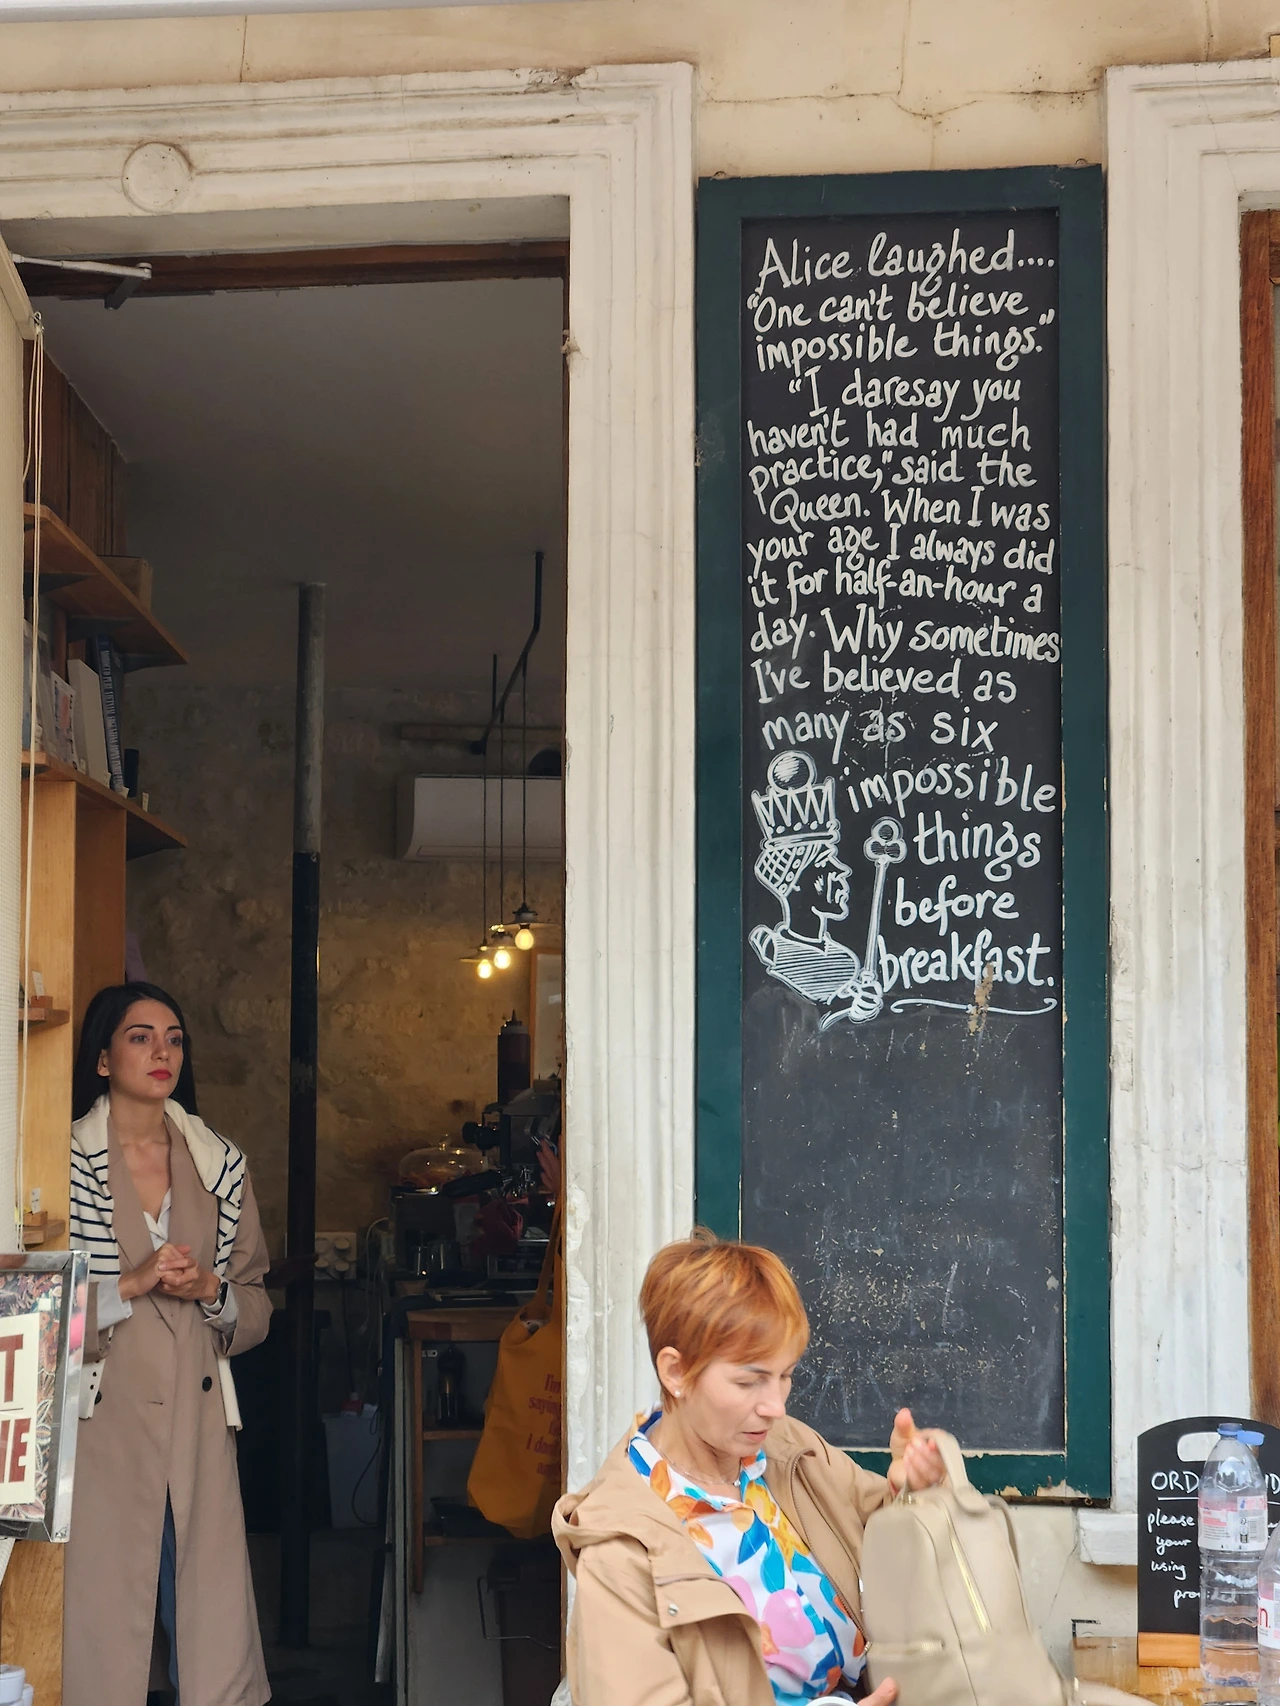 Alice laughed....
"One can't believe
impossible things."
"I daresay you
haven't had much
practice," said the
Queen. When I was
your age I always did
it for half-an-hour a
day. Why sometimes
I've believed as
many as six
impossible
things
before
breakfast.
I'm
I do
please
your
using